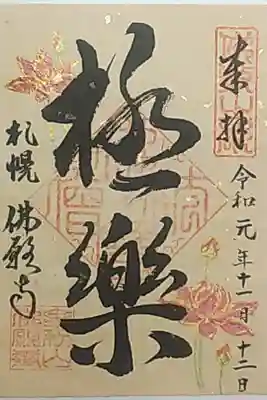 奉拝
令和元年十一月十二日
極樂
札幌 佛願寺